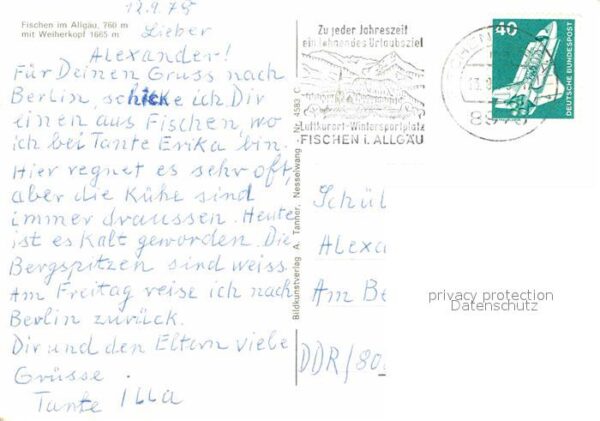 12.9.78
Fischen im Allgäu, 760 m
mit Weiherkopf 1665 m
Lieber
Alexander!
Für Deinen Gruss nach
Berlin, schicke ich Dir
einen aus Fischen, wo
ich bei Tante Erika bin.
Hier regnet es sehr oft,
aber die Kühe sind
immer draussen. Heute
ist es kalt geworden. Die
Bergspitzen sind weiss.
Am Freitag reise ich nach
Berlin zurück.
Dir und den Eltern viele
Grüsse.
Tante Illa
Bildkunstverlag A. Tanner, Nesselwang Nr. 4583 C
Zu jeder Jahreszeit
ein lohnendes Urlaubsziel
Luftkurort-Wintersportplatz
FISCHEN i. ALLGÄU
40
DEUTSCHE BUNDESPOST
Schül
Alexa
Am Be
DDR/80
privacy protection
Datenschutz